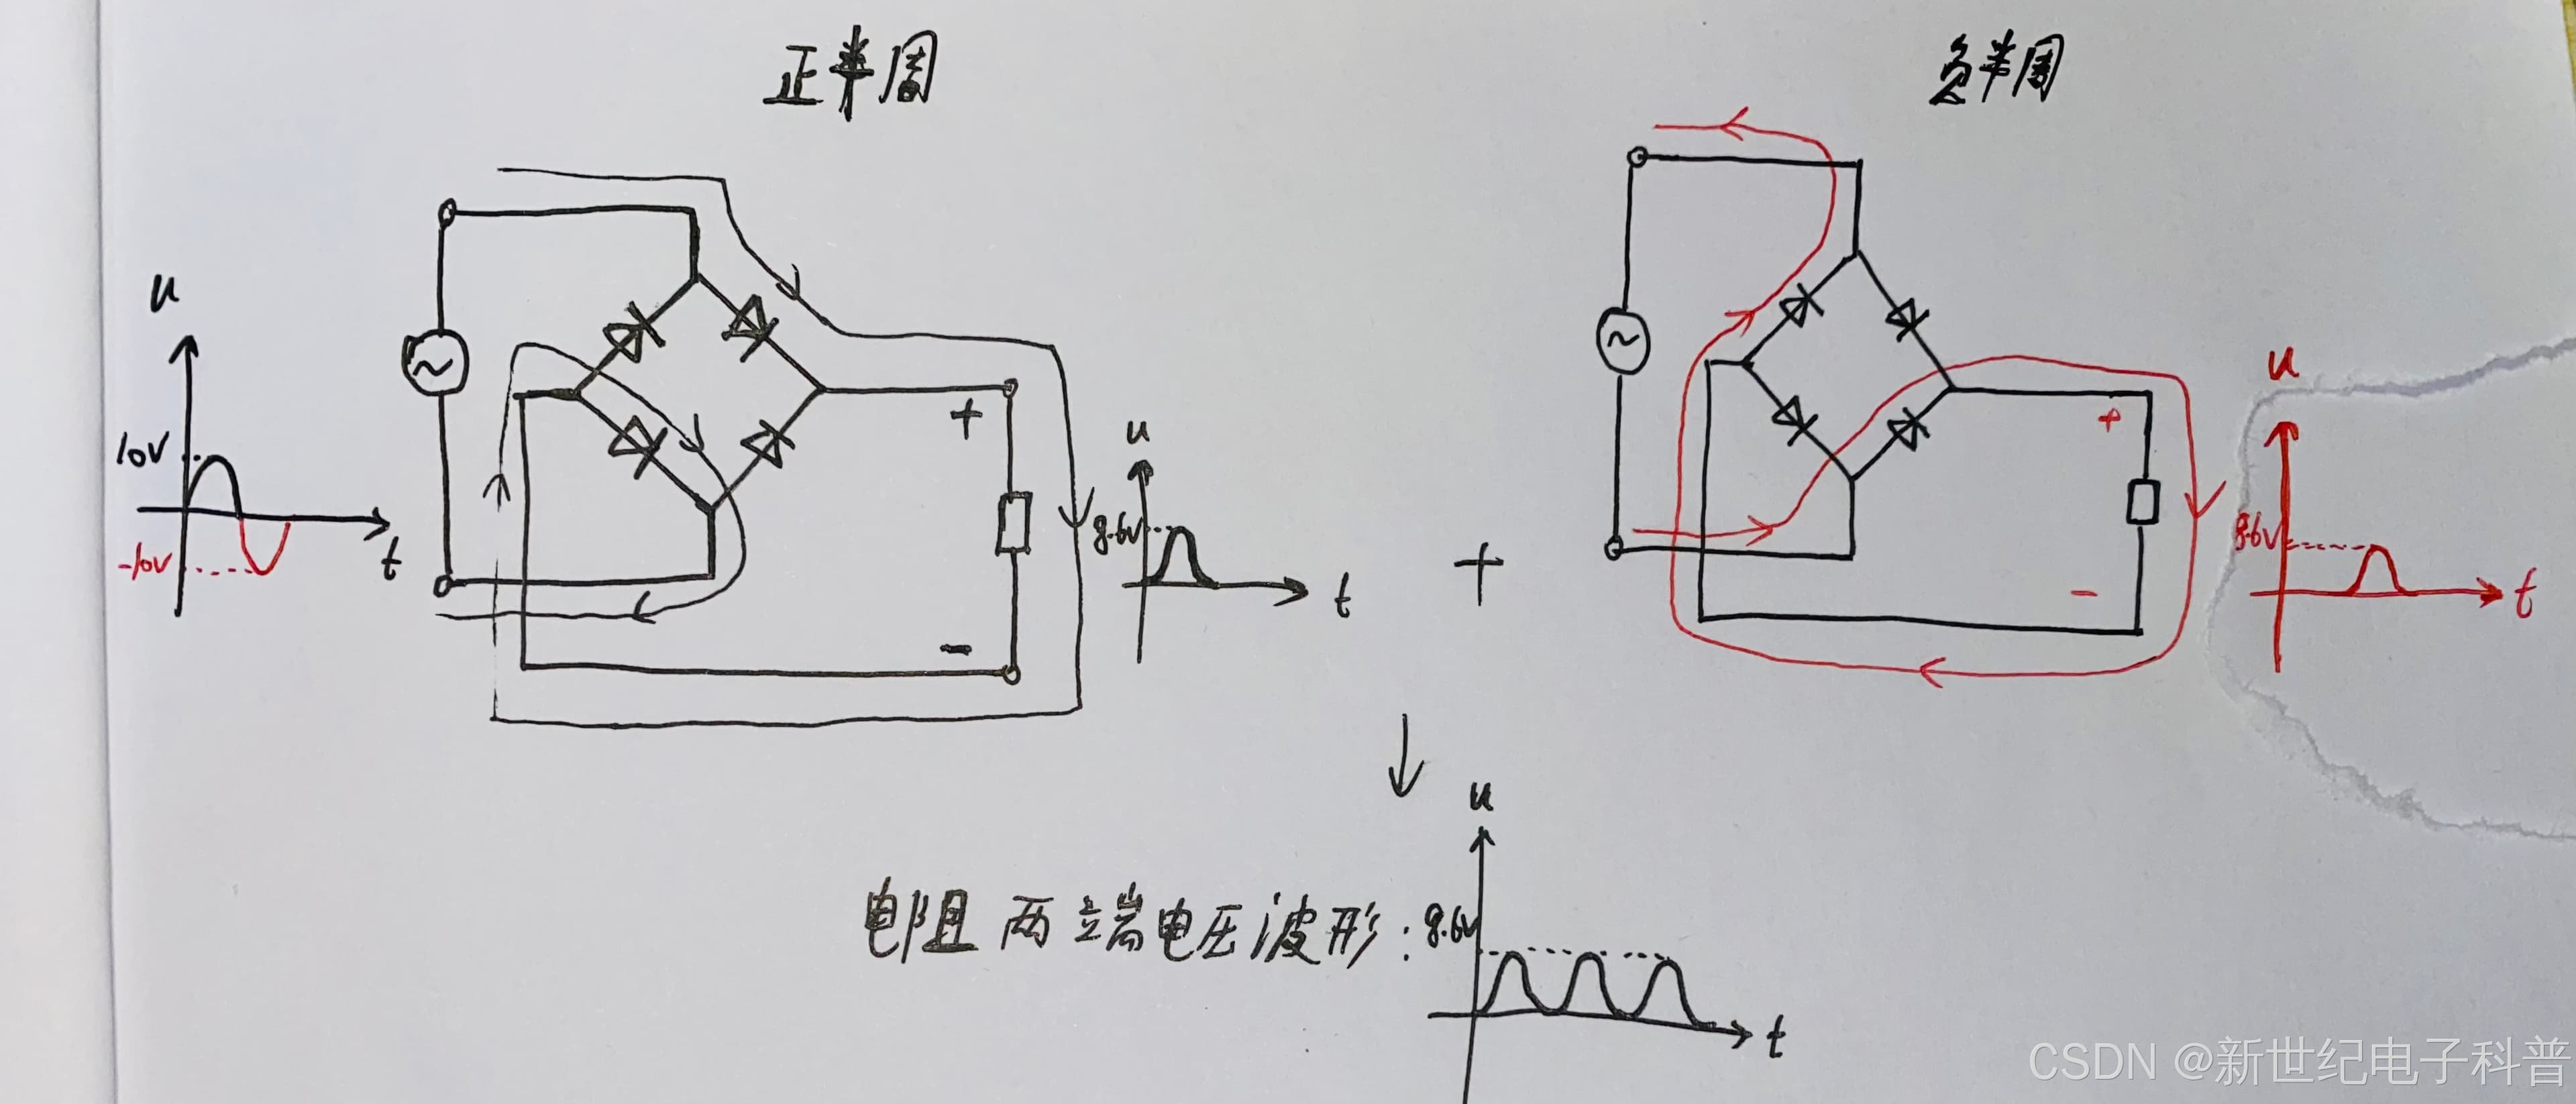 正半周
负半周
u
10V
-10V
t
+
-
u
8.6V
t
+
+
-
u
8.6V
t
u
电阻两端电压波形:
8.6V
t
CSDN @新世纪电子科普